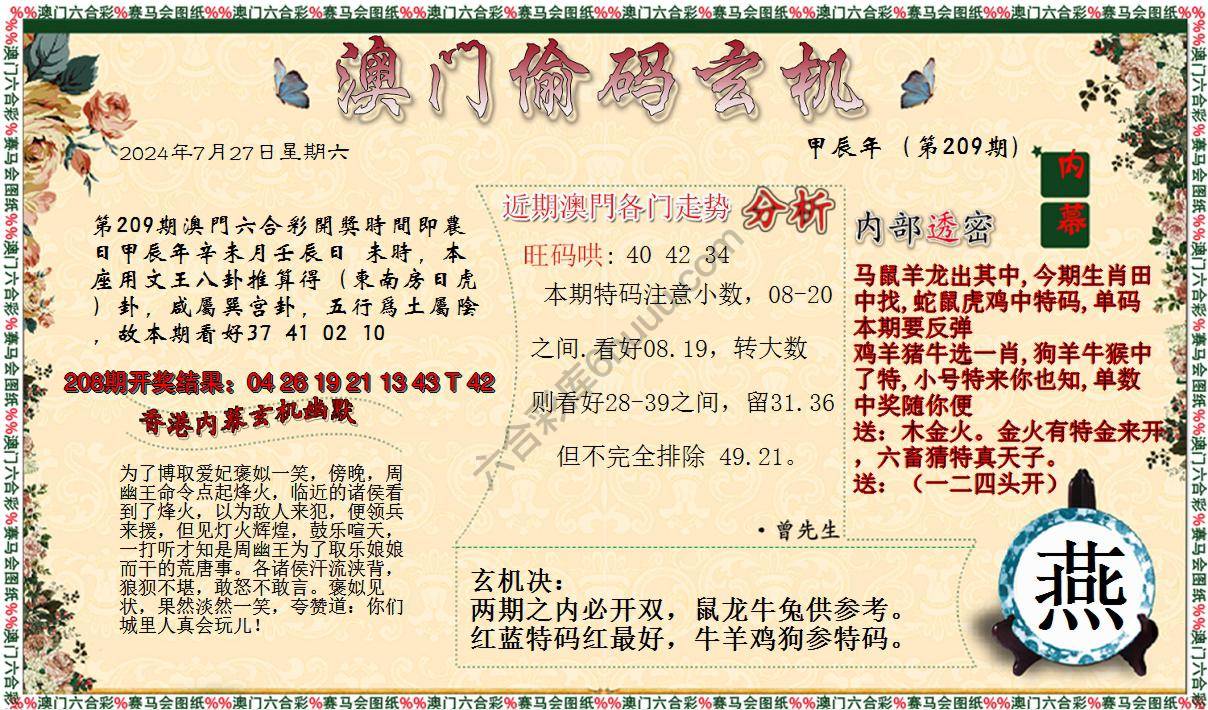 %%澳门六合彩%赛马会图纸%%澳门六合彩%赛马会图纸%%澳门六合彩%赛马会图纸%%澳门六合彩%赛马会图纸%%澳门六合彩%赛马会图纸%%澳门六合彩%赛马会图纸%%
澳门偷码玄机
2024年7月27日星期六
甲辰年（第209期）
内
幕
第209期澳門六合彩開獎時間即農
日甲辰年辛未月壬辰日 未時，本
座用文王八卦推算得（東南房日虎
）卦，咸屬巽宫卦，五行爲土屬陰
，故本期看好37 41 02 10
208期开奖结果：04 26 19 21 13 43 T 42
香港内幕玄机幽默
为了博取爱妃褒姒一笑，傍晚，周
幽王命令点起烽火，临近的诸侯看
到了烽火，以为敌人来犯，便领兵
来援，但见灯火辉煌，鼓乐喧天，
一打听才知是周幽王为了取乐娘娘
而干的荒唐事。各诸侯汗流浃背，
狼狈不堪，敢怒不敢言。褒姒见
状，果然淡然一笑，夸赞道：你们
城里人真会玩儿！
近期澳門各门走势 分析
旺码哄: 40 42 34
本期特码注意小数，08-20
之间.看好08.19，转大数
则看好28-39之间，留31.36
但不完全排除 49.21。
·曾先生
内部透密
马鼠羊龙出其中,今期生肖田
中找,蛇鼠虎鸡中特码,单码
本期要反弹
鸡羊猪牛选一肖,狗羊牛猴中
了特,小号特来你也知,单数
中奖随你便
送：木金火。金火有特金来开
，六畜猜特真天子。
送：（一二四头开）
玄机决：
两期之内必开双，鼠龙牛兔供参考。
红蓝特码红最好，牛羊鸡狗参特码。
燕
%%澳门六合彩%赛马会图纸%%澳门六合彩%赛马会图纸%%澳门六合彩%赛马会图纸%%澳门六合彩%赛马会图纸%%澳门六合彩%赛马会图纸%%澳门六合彩%赛马会图纸%%